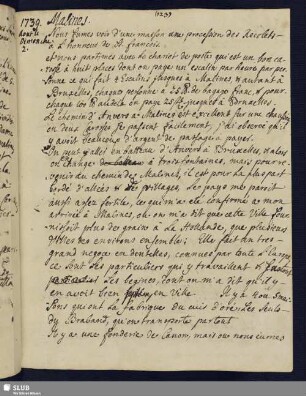 (123)
1739. Malines.
Nous fumes voir d'une maison une procession des Recolets
à l'honneur de St. francois.
et nous partimes avec le chariot de poste qui est un bon ca-
rosse à huit places dont on paye un escalin par heure par per-
sonne ce qui fait 4 Escalins jusques à Malines, & autant à
Bruxelles, chaque personne à 25 lb de bagage franc, & pour
chaque 100 lb au delà on paye 25 jusques à Bruxelles.
le chemin d'Anvers à Malines est excellent sur une chaussée,
ou deux carosses se passent facilement; j'ai observé qu'il
y avoit beaucoup d'argent de passages à payer.
on peut aller en batteau d'Anvers à Bruxelles, & alors
on change à trois fontaines, mais pour re-
venir au chemin de Malines, il est pour la plus part
bordé d'allées & de villages, le pays me paroit
aussi assez fertile, ce qu'on m'a été confirmé à mon
arrivée à Malines, où on m'a dit que cette Ville four-
nissoit plus des grains à la Hollande, que plusieurs
Villes des environs ensemble; Elle fait un tres-
grand negoce en dentelles, connues par toute l'Europe,
ce sont des particuliers qui y travaillent &
des begines, dont on m'a dit qu'il y
en avoit bien en Ville
la fabrique du cuir doré, les seuls
du Braband, qu'on transporte partout
Il y a une fonderie de Canons, mais où nous eumes